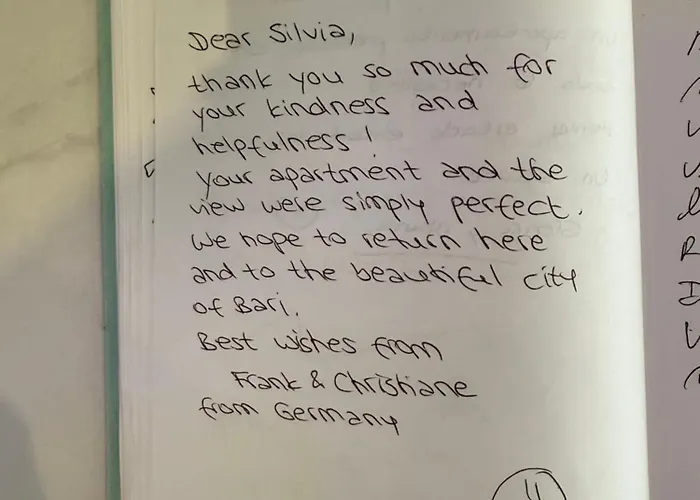 Dear Silvia,
thank you so much for
your kindness and
helpfulness!
your apartment and the
view were simply perfect.
We hope to return here
and to the beautiful city
of Bari.
Best wishes from
Frank & Christiane
from Germany
11